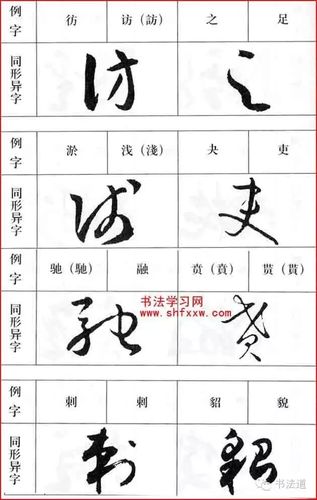 例字 彷 访（訪） 之 足
同形异字
例字 淤 浅（淺） 夬 吏
同形异字
例字 驰（馳） 融 贲（賁） 贳（貰）
同形异字
书法学习网
www.shfxxw.com
例字 刺 刺 貂 貌
同形异字
书法道